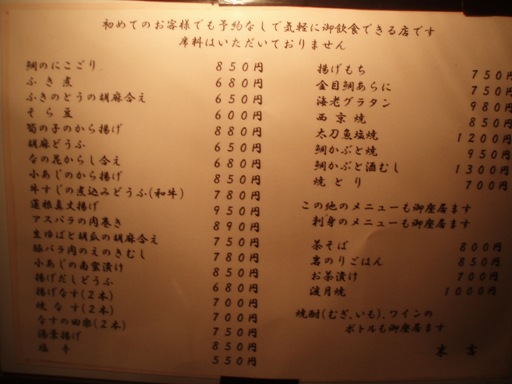 初めてのお客様でも予約なしで気軽に御飲食できる店です
席料はいただいておりません
鯛のにこごり 850円
ふき煮 680円
ふきのとうの胡麻合え 650円
そら豆 600円
筍の子のから揚げ 880円
胡麻どうふ 650円
なの花からし合え 680円
小あじのから揚げ 850円
牛すじの煮込みどうふ(和牛) 780円
蓮根真丈揚げ 950円
アスパラの肉巻き 890円
生ゆばと胡瓜の胡麻合え 750円
豚バラ肉のえのきむし 780円
小あじの南蛮漬け 850円
揚げだしどうふ 680円
揚げなす(2本) 700円
焼なす(2本) 700円
なすの田楽(2本) 750円
海苔揚げ 850円
塩辛 550円
揚げもち 750円
金目鯛あらに 750円
海老グラタン 980円
西京焼 850円
太刀魚塩焼 1200円
鯛かぶと焼 950円
鯛かぶと酒むし 1300円
焼とり 700円
この他のメニューも御座居ます
刺身のメニューも御座居ます
茶そば 800円
岩のりごはん 850円
お茶漬け 700円
渡月焼 1000円
焼酎(むぎ、いも)、ワインの
ボトルも御座居ます